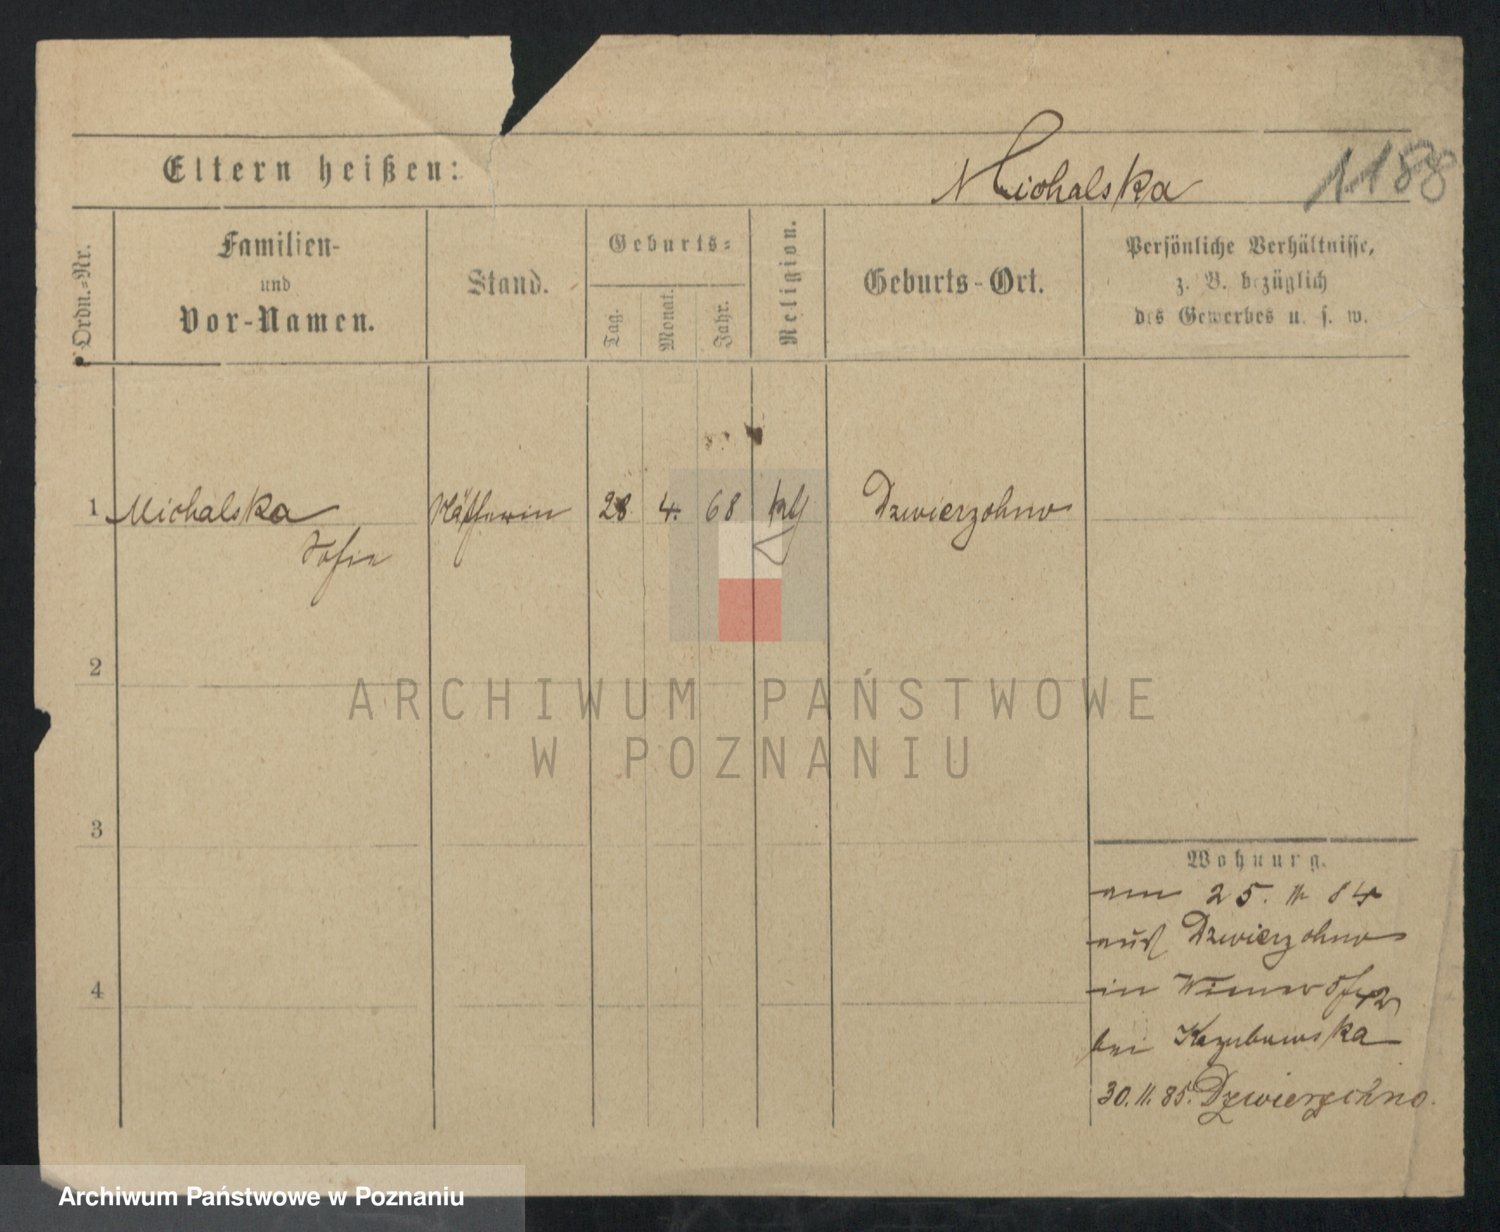 Eltern heißen:
Michalska
1188
Ordn.-Nr.
Familien-
und
Vor-Namen.
Stand.
Geburts-
Tag.
Monat.
Jahr.
Religion.
Geburts-Ort.
Persönliche Verhältnisse,
z. B. bezüglich
des Gewerbes u. s. w.
1 Michalska
Sofie
Näherin
28. 4. 68
kth
Dzwierzchno
2
3
4
Wohnung.
am 25. 11 84
aus Dzwierzchno
in
bei Kazubowska
30.11.85. Dzwierzchno.
ARCHIWUM PAŃSTWOWE
W POZNANIU
Archiwum Państwowe w Poznaniu